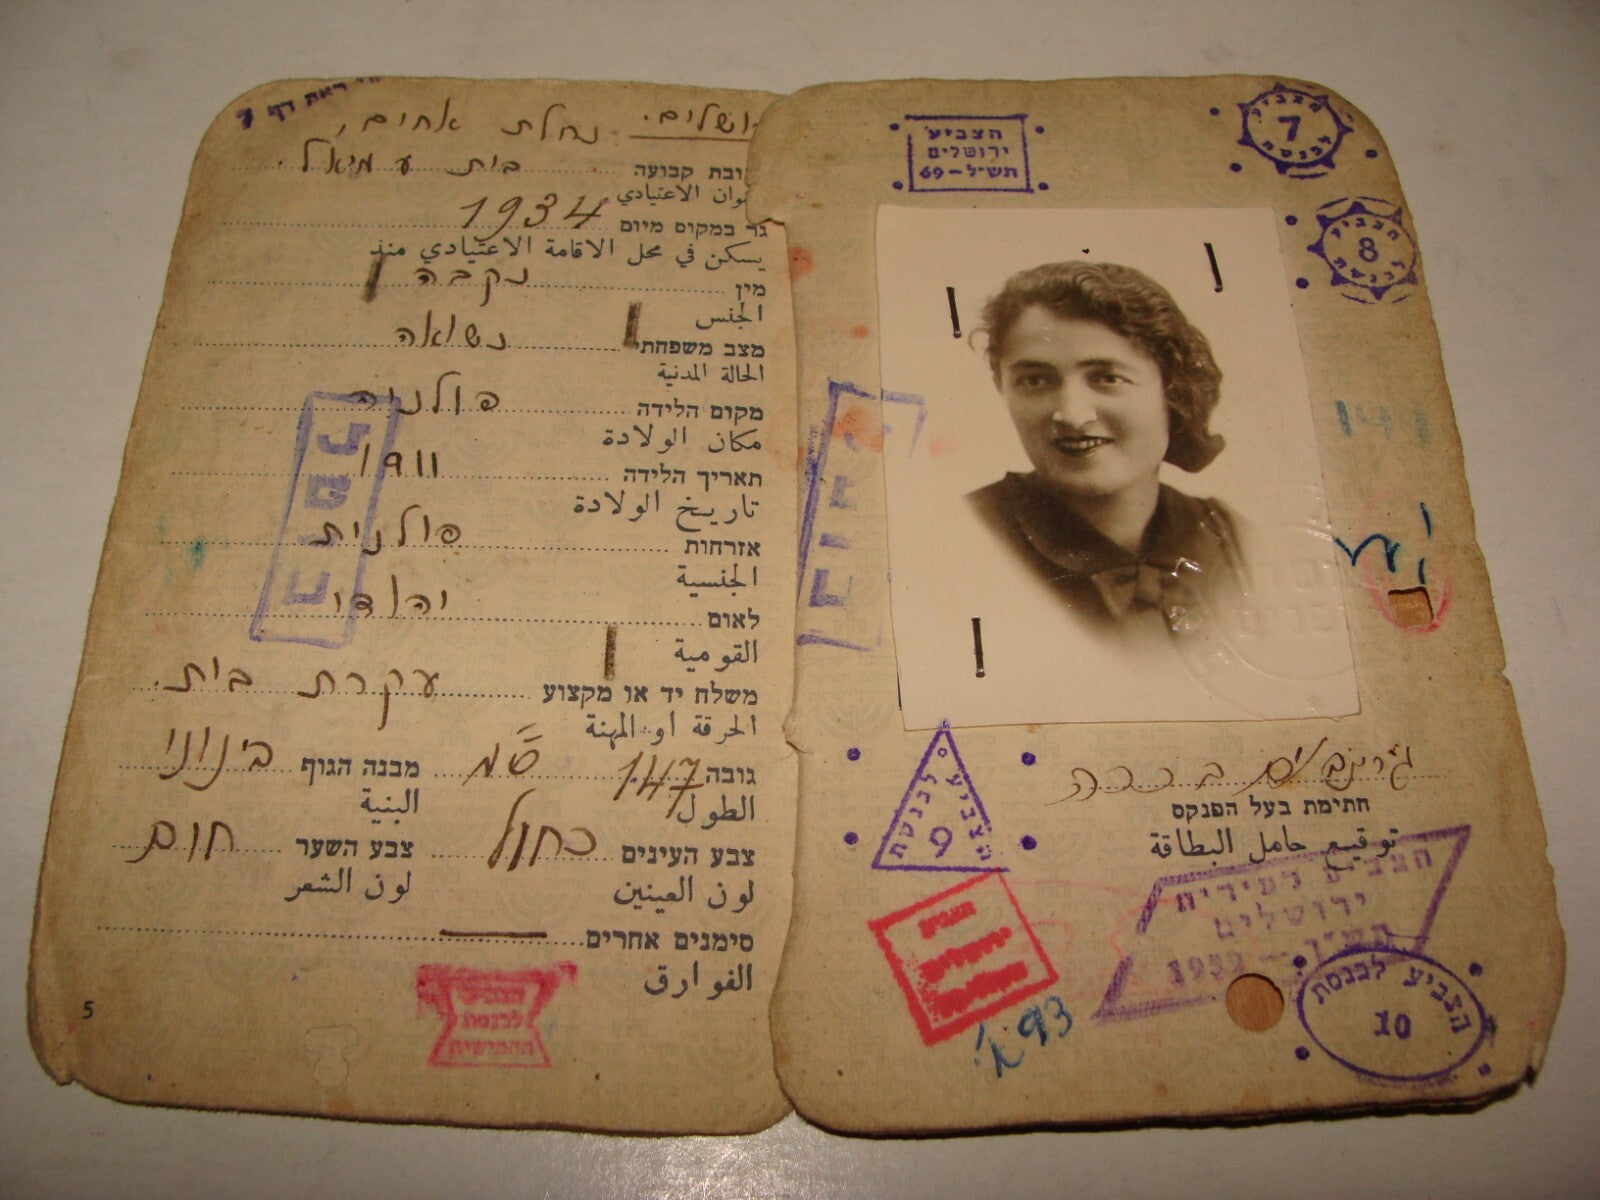 ראה דף 7
נחלת אחים,
בית עמיאל.
קבועה
الاعتيادي
גר במקום מיום 1934
يسكن في محل الاقامة الاعتيادي منذ
מין נקבה
الجنس
מצב משפחתי נשואה
الحالة المدنية
מקום הלידה פולניה
مكان الولادة
תאריך הלידה 1911
تاريخ الولادة
אזרחות פולנית
الجنسية
לאום יהודי
القومية
משלח יד או מקצוע עקרת בית.
الحرقة او المهنة
גובה 147 ס"מ מבנה הגוף בינוני
الطول البنية
צבע העינים כחול צבע השער חום
لون العينين لون الشعر
סימנים אחרים
الفوارق
הצביע
לכנסת
החמישית
5
הצביע
ירושלים
תש"ל - 69
הצביע לכנסת
7
הצביע לכנסת
8
חתימת בעל הפנקס
توقيع حامل البطاقة
הצביע לכנסת
9
הצביע
ירושלים
הצביע לעירית
ירושלים
1959
93
הצביע לכנסת
10